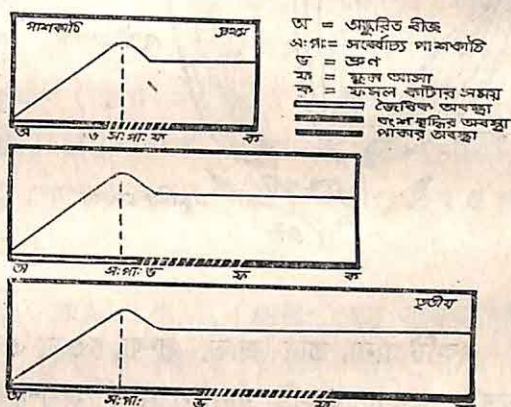 পাশকাঠি
প্রথম
অ = অঙ্কুরিত বীজ
স:পা: = সর্ব্বোচ্চ পাশকাঠি
ভ = ভ্রূণ
ফ = ফুল আসা
ক = ফসল কাটার সময়
জৈবিক অবস্থা
বংশ বৃদ্ধির অবস্থা
পাকার অবস্থা
অ ভ স:পা: ফ ক
অ স:পা: ভ ফ ক
তৃতীয়
অ স:পা: ভ ফ ক